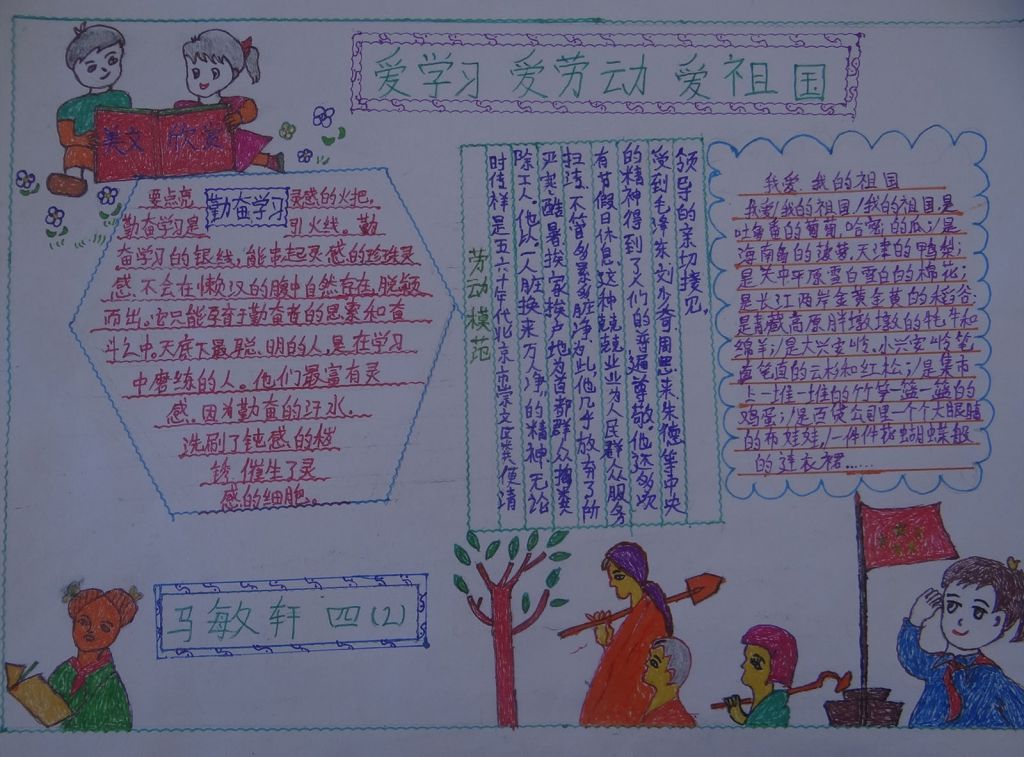 爱学习 爱劳动 爱祖国
美文 欣赏
勤奋学习
要点亮灵感的火把,
勤奋学习是引火线。勤
奋学习的银线,能串起灵感的珍珠灵
感,不会在懒汉的脑中自然存在,脱颖
而出。它只能孕育于勤奋者的思索和奋
斗之中,天底下最聪明的人,是在学习
中磨练的人。他们最富有灵
感,因为勤奋的汗水。
洗刷了钝感的锈
锈,催生了灵
感的细胞。
劳动模范
时传祥是五六十年代北京崇文区粪便清
除工人。他以“一人脏换来万人净”的精神无论
严寒酷暑挨家挨户地为首都群众掏粪
扫污,不管多累多脏为此,他几乎放弃了所
有节假日休息,这种兢兢业业为人民群众服务
的精神得到了人们的普遍尊敬。他还多次
受到毛泽东刘少奇、周恩来朱德等中央
领导的亲切接见。
我爱,我的祖国
我爱/我的祖国/我的祖国是
吐鲁番的葡萄,哈密的瓜;/是
海南岛的菠萝,天津的鸭梨;
是关中平原雪白雪白的棉花;
是长江两岸金黄金黄的稻谷
是青藏高原胖墩墩的牦牛和
绵羊;/是大兴安岭、小兴安岭笔
直笔直的云杉和红松;/是集市
上一堆一堆的竹笋一篮一篮的
鸡蛋;/是百货公司里一个个大眼睛
的布娃娃,/一件件花蝴蝶般
的连衣裙……
马敏轩 四(2)